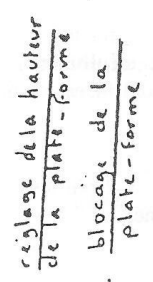 réglage dela hauteur
de la plate-forme
blocage de la
plate-forme